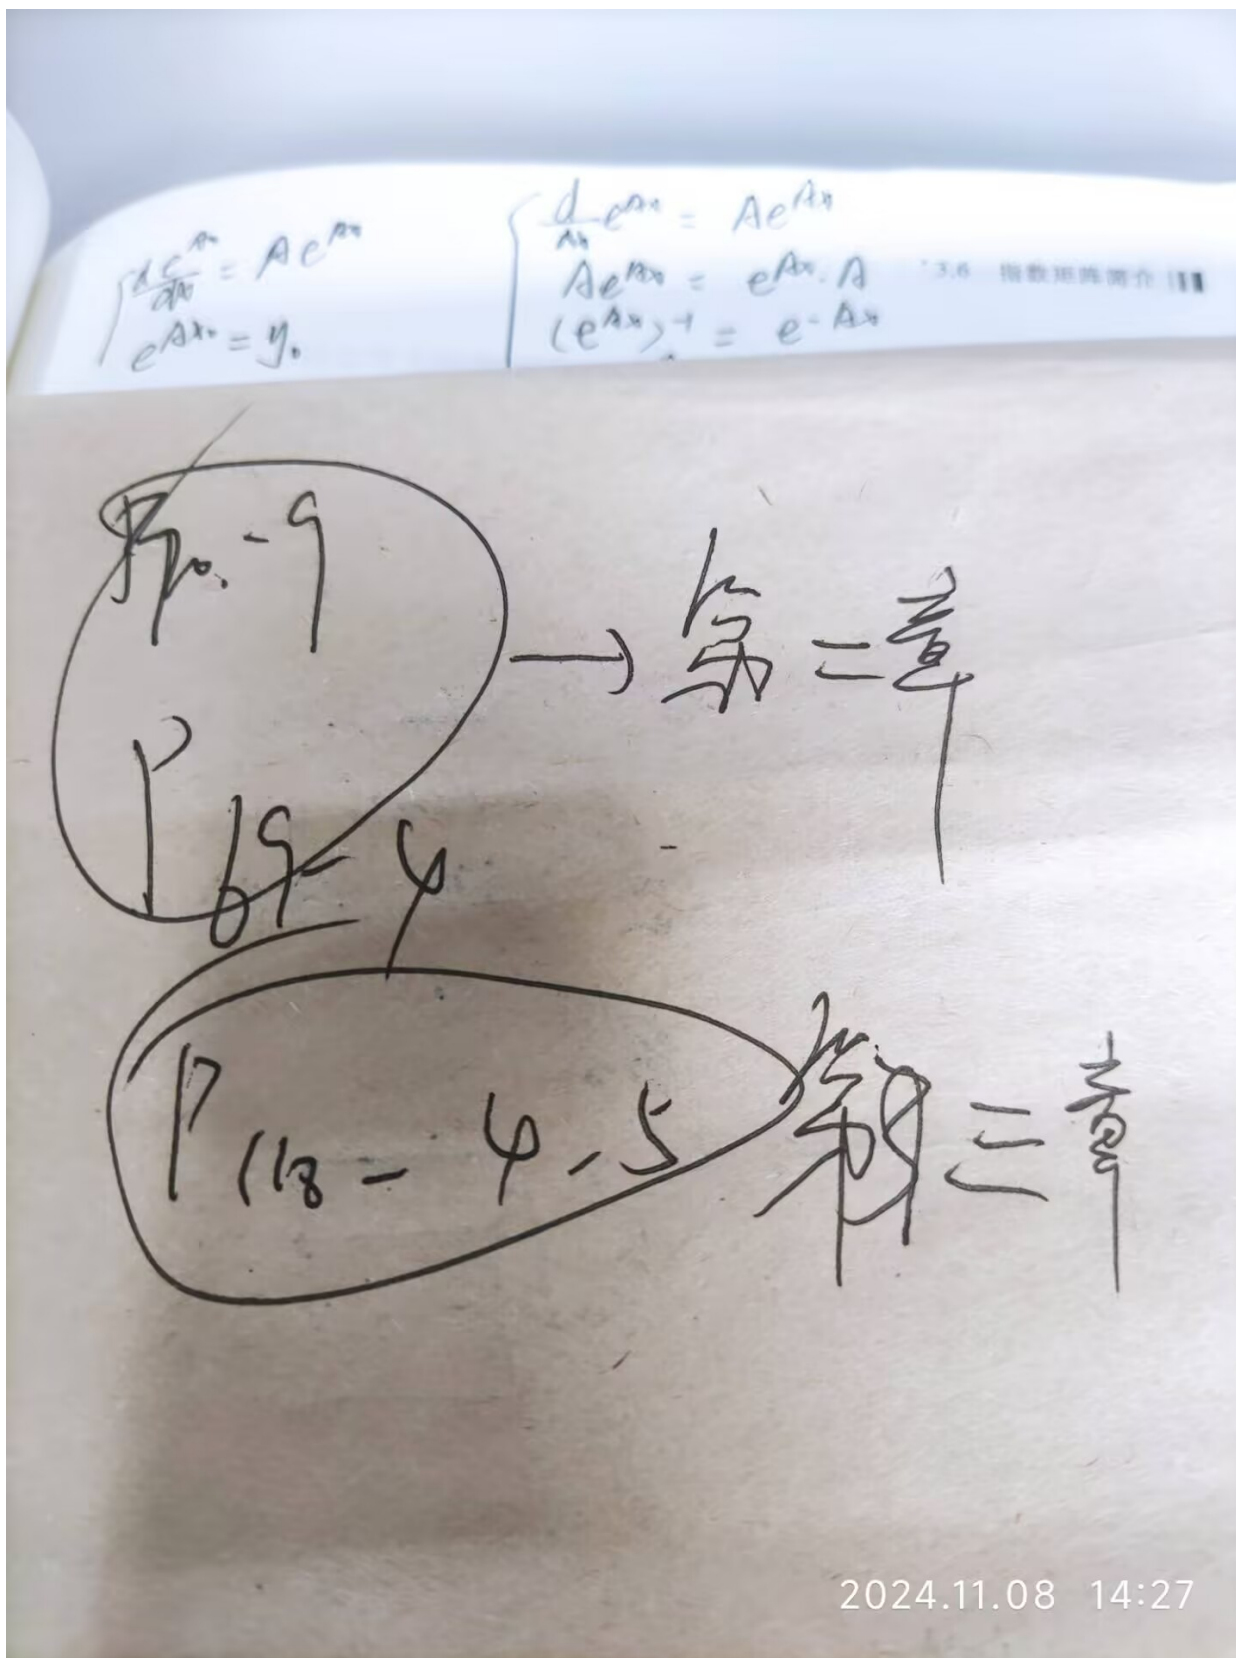 d e^{Ax}/dx = A e^{Ax}
e^{Ax₀} = y₀
d/dx e^{Ax} = A e^{Ax}
A e^{Ax} = e^{Ax} · A
(e^{Ax})^{-1} = e^{-Ax}
3.6 指数矩阵简介
P₇₀. - 9
→ 第二章
P 69 - 4
P 118 - 4 、5 第三章
2024.11.08 14:27